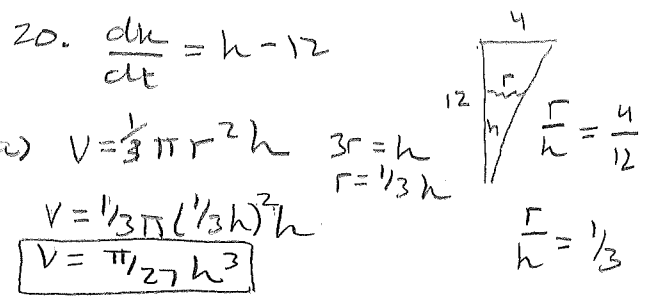 20. dh/dt = h - 12
a) V = 1/3 π r² h
3r = h
r = 1/3 h
V = 1/3 π (1/3 h)² h
V = π/27 h³
4
12
r
h
r/h = 4/12
r/h = 1/3